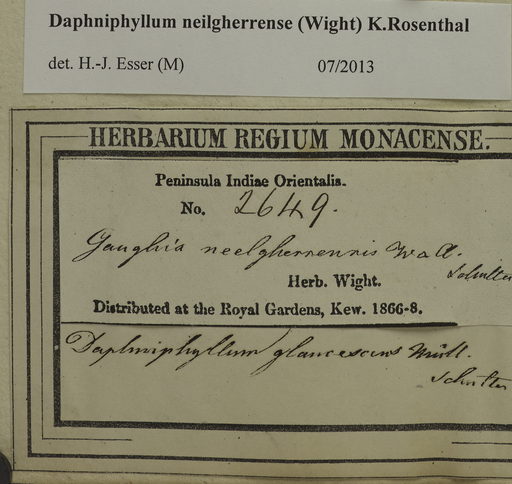 Daphniphyllum neilgherrense (Wight) K.Rosenthal
det. H.-J. Esser (M) 07/2013
HERBARIUM REGIUM MONACENSE.
Peninsula Indiae Orientalis.
No. 2649.
Goughia neelgherrensis
Herb. Wight.
Distributed at the Royal Gardens, Kew. 1866-8.
Daphniphyllum glaucescens Müll.